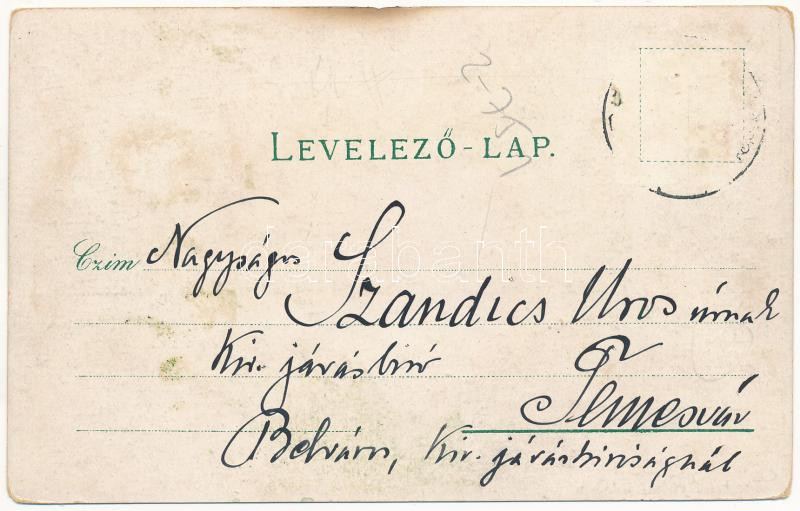 LEVELEZŐ-LAP.
Czim Nagyságos Szandics Uros úrnak
Kir. járásbiró
Temesvár
Belváros, Kir. járásbiróságnál
darabanth